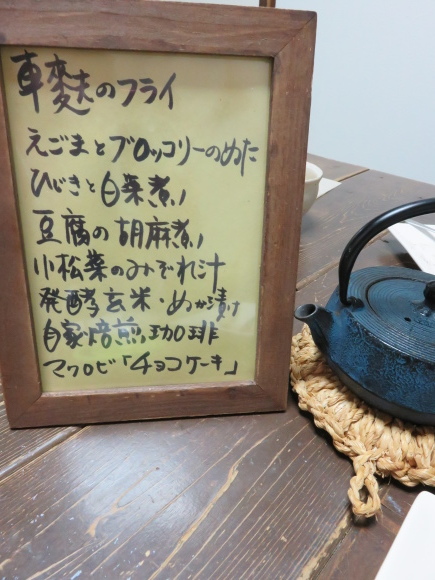 車麩のフライ
えごまとブロッコリーのぬた
ひじきと白菜煮
豆腐の胡麻煮
小松菜のみぞれ汁
発酵玄米・ぬか漬け
自家焙煎珈琲
マクロビ「チョコケーキ」